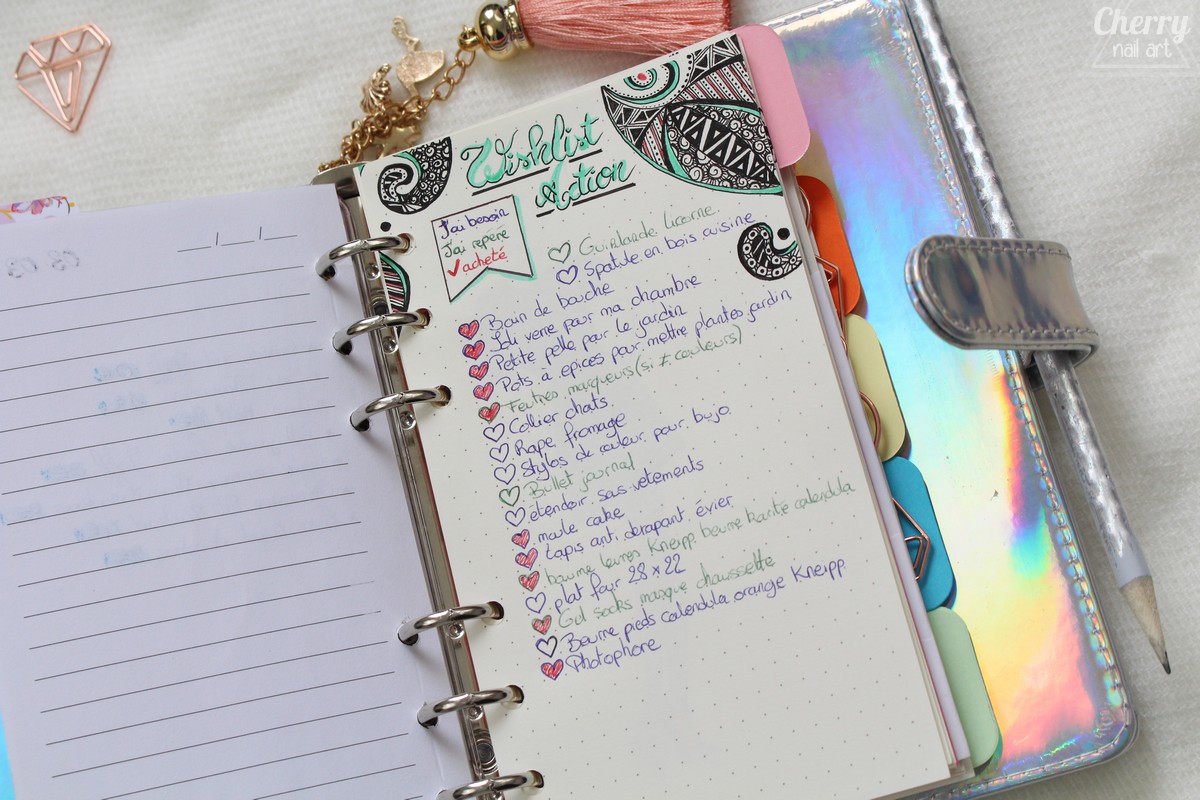 Cherry
nail art
Wishlist
Action
J'ai besoin
J'ai repéré
acheté
Guirlande licorne
Spatule en bois cuisine
Bain de bouche
Joli verre pour ma chambre
Petite pelle pour le jardin
Pots à epices pour mettre plantes jardin
Feutres marqueurs (si ≠ couleurs)
Collier chats
Rape fromage
Stylos de couleur pour bujo
Bullet journal
étendoir sous-vetements
moule cake
tapis anti dérapant évier
baume levres Kneipp beurre karité calendula
plat four 28 x 22
Gel socks masque chaussette
Beume pieds calendula orange Kneipp
Photophore
_/_/_